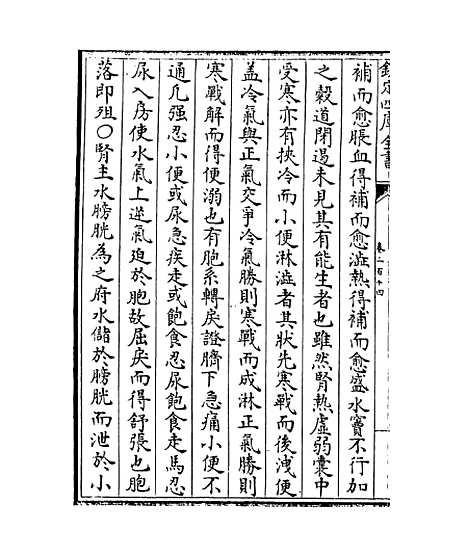 欽定四庫全書
卷二百十四
補而愈脹血得補而愈澁熱得補而愈盛水竇不行加
之穀道閉遏未見其有能生者也雖然腎熱虚弱囊中
受寒亦有挾冷而小便淋澁者其狀先寒戰而後溲便
盖冷氣與正氣交爭冷氣勝則寒戰而成淋正氣勝則
寒戰解而得便溺也有胞系轉戾證臍下急痛小便不
通凡强忍小便或尿急疾走或飽食忍尿飽食走馬忍
尿入房使水氣上逆氣迫於胞故屈戾而得舒張也胞
落即殂○腎主水膀胱為之府水儲於膀胱而泄於小